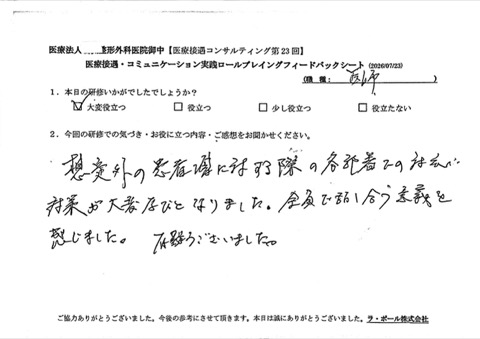 医療法人 整形外科医院御中【医療接遇コンサルティング第23回】
医療接遇・コミュニケーション実践ロールプレイングフィードバックシート (2026/07/23)
(職種: 医師 )
1．本日の研修いかがでしたでしょうか？
☑大変役立つ □役立つ □少し役立つ □役立たない
2．今回の研修での気づき・お役に立つ内容・ご感想をお聞かせください。
想定外の患者様に対する際の各部署での対応が
対策が大変学びとなりました。全員で話し合う意義を
感じました。 有難うございました。
ご協力ありがとうございました。今後の参考にさせて頂きます。本日は誠にありがとうございました。ラ・ポール株式会社